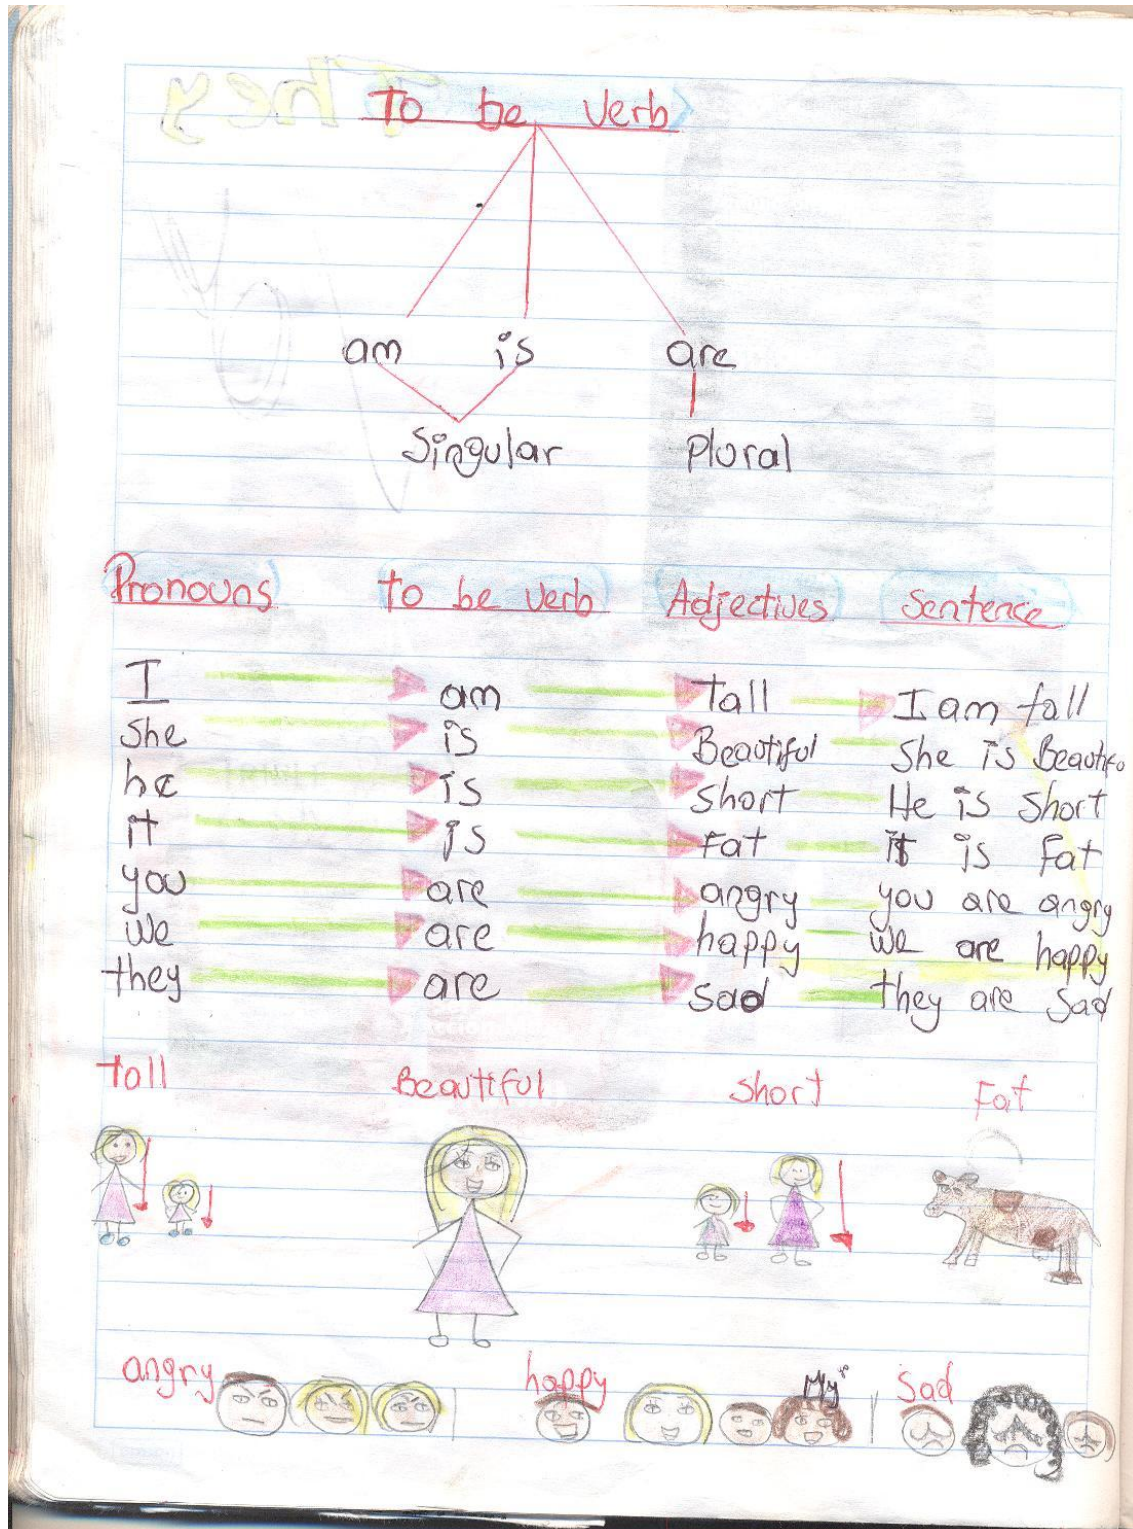 They
To be verb
am is are
Singular Plural
Pronouns to be verb Adjectives Sentence
I am tall I am tall
She is Beautiful She is Beautifu
he is short He is short
it is Fat it is Fat
you are angry you are angry
we are happy we are happy
they are sad they are sad
tall Beautiful short Fat
angry happy My sad